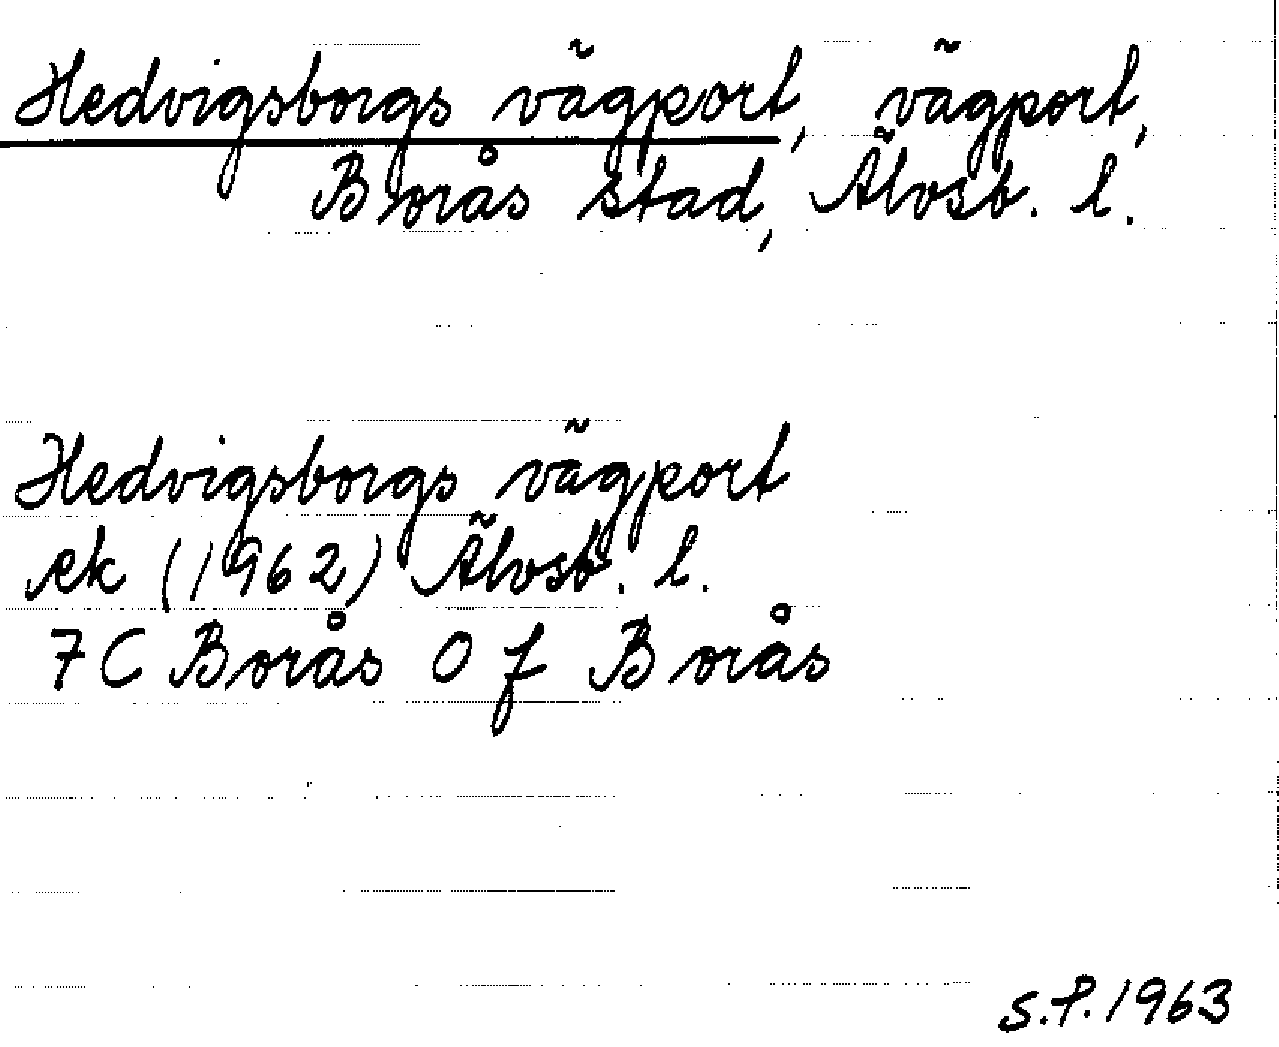 Hedvigsborgs vägport, vägport,
Borås stad, Älvsb. l.
Hedvigsborgs vägport
ek (1962) Älvsb. l.
7C Borås 0 f Borås
S.P. 1963